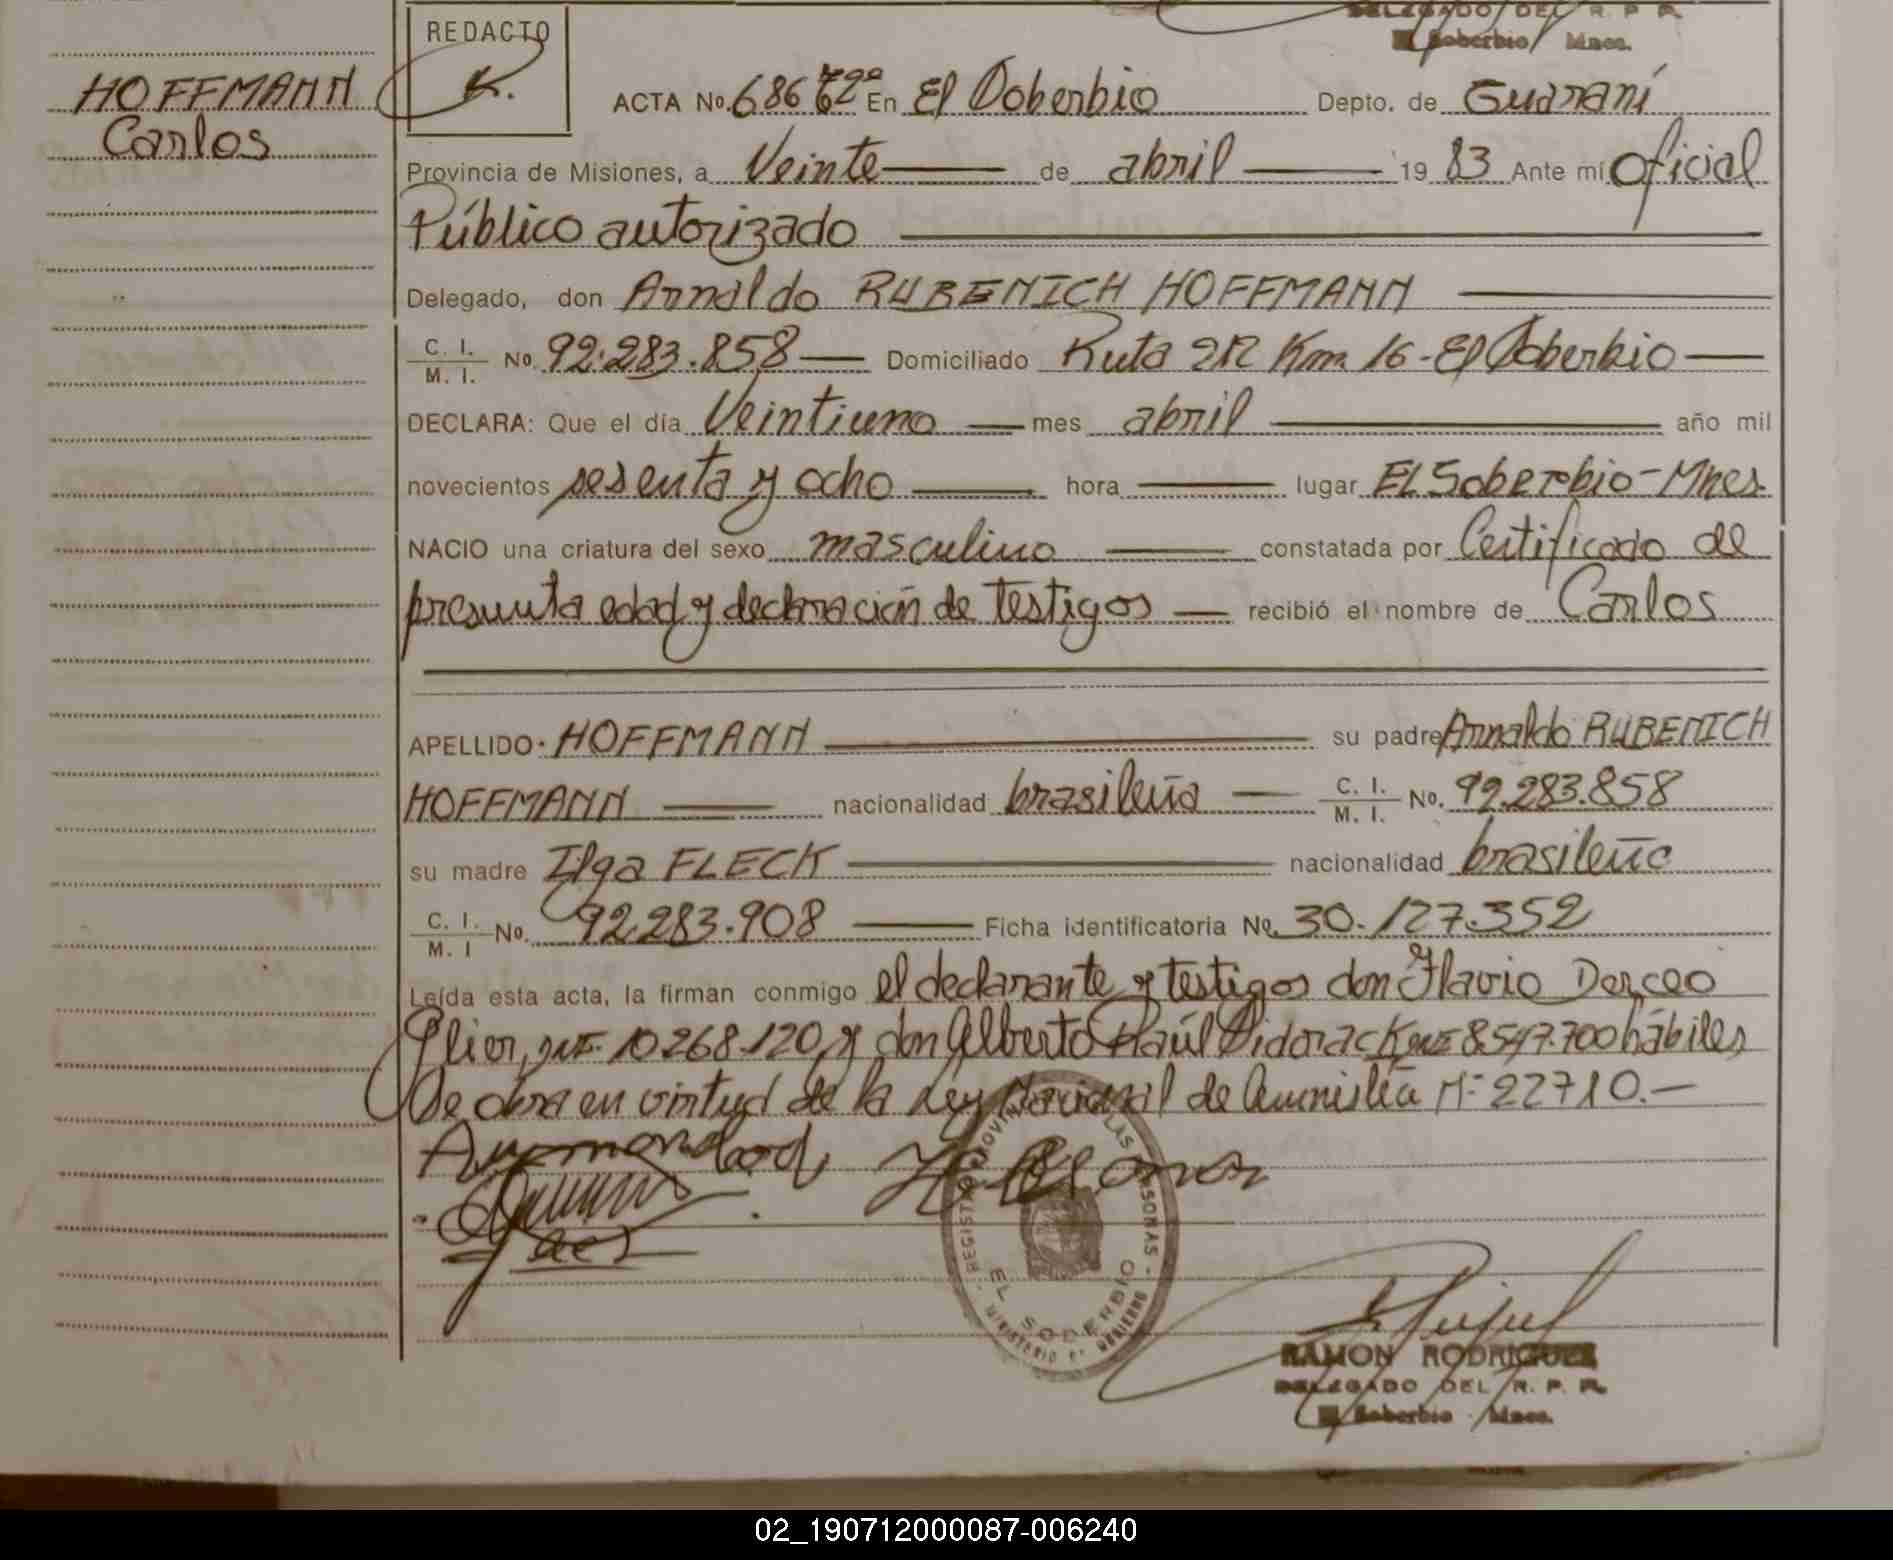 DELEGADO DEL R. P. P.
El Soberbio Mnes.
REDACTO
HOFFMANN
Carlos
ACTA No. 686 En El Soberbio Depto. de Guaraní
Provincia de Misiones, a Veinte de abril 19 83 Ante mí Oficial
Público autorizado
Delegado, don Arnaldo RUBENICH HOFFMANN
C. I.
M. I. No. 92.283.858 Domiciliado Ruta 212 Km. 16 - El Soberbio
DECLARA: Que el día Veintiuno mes abril año mil
novecientos sesenta y ocho hora lugar El Soberbio - Mnes.
NACIO una criatura del sexo masculino constatada por Certificado de
presunta edad y declaración de testigos recibió el nombre de Carlos
APELLIDO HOFFMANN su padre Arnaldo RUBENICH
HOFFMANN nacionalidad brasileña C. I.
M. I. No. 92.283.858
su madre Ilga FLECK nacionalidad brasileña
C. I.
M. I No. 92.283.908 Ficha identificatoria No. 30.127.352
Leída esta acta, la firman conmigo el declarante y testigos don Flavio Derceo
10.268.120 y don Alberto Raúl 8.547.700 hábiles
Se obra en virtud de la Ley Nacional de Amnistía Nº 22710.-
REGISTRO PROVINCIAL DE LAS PERSONAS
EL SOBERBIO
MINISTERIO DE GOBIERNO
RAMON RODRIGUEZ
DELEGADO DEL R. P. P.
El Soberbio - Mnes.
02_190712000087-006240